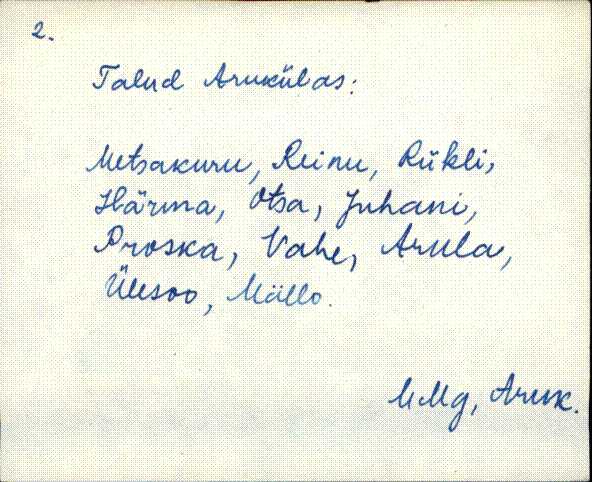 2.
Talud Arukülas:
Metsakuru, Reinu, Rükli,
Härma, Otsa, Juhani,
Proska, Vahe, Arula,
Ülesoo, Mällo.
MMg, Aruk.